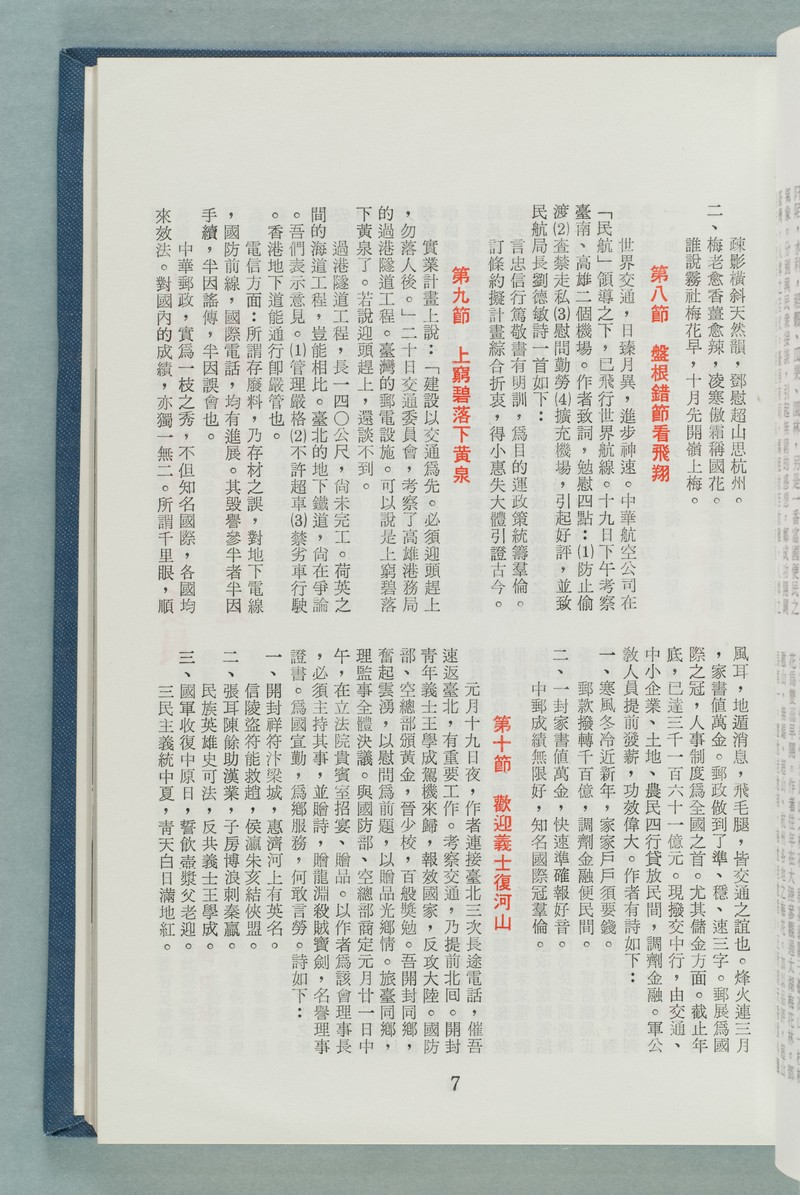 疎影橫斜天然韻，鄧慰超山思杭州。
二、梅老愈香薑愈辣，凌寒傲霜稱國花。
誰說霧社梅花早，十月先開嶺上梅。
第八節　盤根錯節看飛翔
世界交通，日臻月異，進步神速。中華航空公司在
「民航」領導之下，已飛行世界航線。十九日下午考察
臺南、高雄二個機場。作者致詞，勉慰四點：⑴防止偷
渡⑵查禁走私⑶慰問勤勞⑷擴充機場，引起好評，並致
民航局長劉德敏詩一首如下：
言忠信行篤敬書有明訓，爲目的運政策統籌羣倫。
訂條約擬計畫綜合折衷，得小惠失大體引證古今。
第九節　上窮碧落下黃泉
實業計畫上說：「建設以交通爲先。必須迎頭趕上
，勿落人後。」二十日交通委員會，考察了高雄港務局
的過港隧道工程。臺灣的郵電設施。可以說是上窮碧落
下黃泉了。若說迎頭趕上，還談不到。
過港隧道工程，長一四〇公尺，尙未完工。荷英之
間的海道工程，豈能相比。臺北的地下鐵道，尙在爭論
。吾們表示意見。⑴管理嚴格⑵不許超車⑶禁劣車行駛
。香港地下道能通行卽嚴管也。
電信方面：所謂存廢料，乃存材之誤，對地下電線
，國防前線，國際電話，均有進展。其毀譽參半者半因
手續，半因謠傳，半因誤會也。
中華郵政，實爲一枝之秀，不但知名國際，各國均
來效法。對國內的成績，亦獨一無二。所謂千里眼，順
風耳，地遁消息，飛毛腿，皆交通之誼也。烽火連三月
，家書値萬金。郵政做到了準、穩、速三字。郵展爲國
際之冠，人事制度爲全國之首。尤其儲金方面。截止年
底，已達三千一百六十一億元。現撥交中行，由交通、
中小企業、土地、農民四行貸放民間，調劑金融。軍公
敎人員提前發薪，功效偉大。作者有詩如下：
一、寒風冬冷近新年，家家戶戶須要錢。
郵款撥轉千百億，調劑金融便民間。
二、一封家書値萬金，快速準確報好音。
中郵成績無限好，知名國際冠羣倫。
第十節　歡迎義士復河山
元月十九日夜，作者連接臺北三次長途電話，催吾
速返臺北，有重要工作。考察交通，乃提前北囘。開封
靑年義士王學成駕機來歸，報效國家，反攻大陸。國防
部、空總部頒黃金，晉少校，百般獎勉。吾開封同鄉，
奮起雲湧，以慰問爲前題，以贈品光鄉情。旅臺同鄉，
理監事全體決議。與國防部、空總部商定元月廿一日中
午，在立法院貴賓室招宴、贈品。以作者爲該會理事長
，必須主持其事，並贈詩，贈龍淵殺賊寶劍，名譽理事
證書。爲國宣勤，爲鄉服務，何敢言勞。詩如下：
一、開封祥符汴梁城，惠濟河上有英名。
信陵盜符能救趙，侯瀛朱亥結俠盟。
二、張耳陳餘助漢業，子房博浪刺秦嬴。
民族英雄史可法，反共義士王學成。
三、國軍收復中原日，誓飮壺漿父老迎。
三民主義統中夏，靑天白日滿地紅。
7